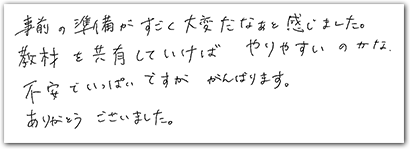 事前の準備がすごく大変だなぁと感じました。
教材を共有していけば やりやすいのかな.
不安でいっぱいですが がんばります。
ありがとう ございました。